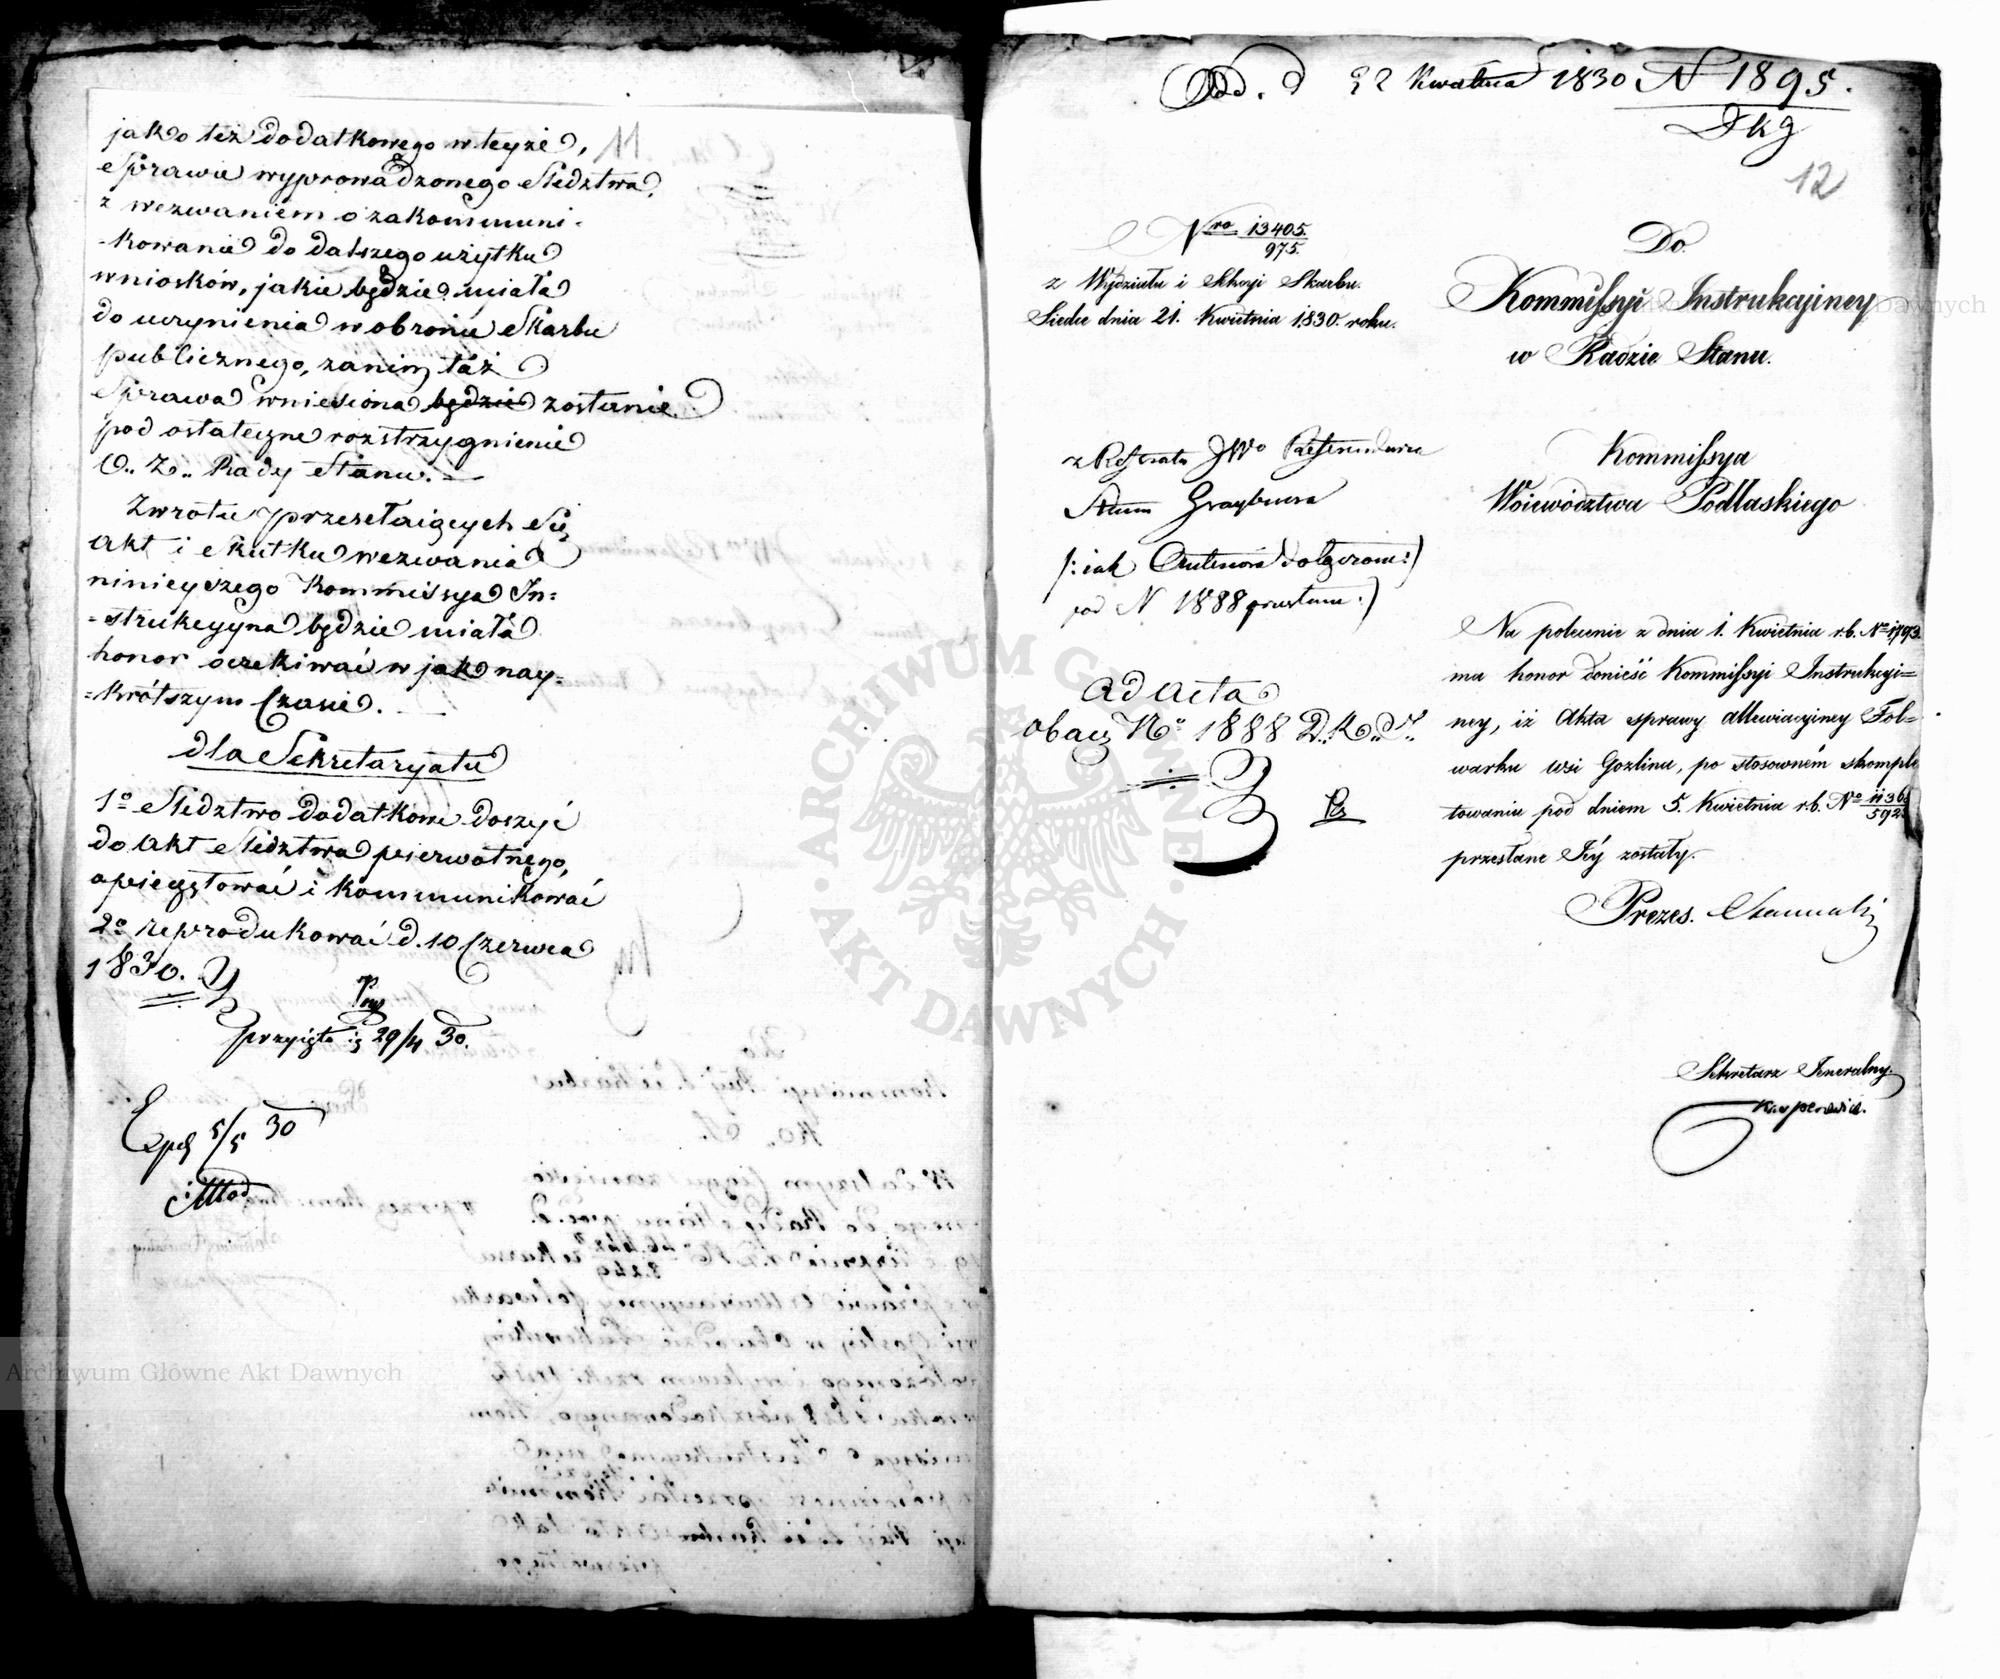 11
jako też dodatkowego w teyże
Sprawie wyprowadzonego Sledztwa,
z wezwaniem o zakommuni-
-kowanie do dalszego użytku
wniosków, jakie będzie miała
do uczynienia w obronie Skarbu
publicznego, zanim taż
Sprawa wniesiona będzie zostanie
pod ostateczne rozstrzygnienie
O.. Z.. Rady Stanu.
Zwrotu przesełaiących Się
Akt i skutku wezwania
ninieyszego Kommissya In=
=strukcyyna będzie miała
honor oczekiwać w jak nay=
=krótszym Czasie.
dla Sekretaryatu
1o Sledztwo dodatkowe doszyć
do Akt Sledztwa pierwotnego,
opieczętować i kommunikować
2o reprodukować d. 10 Czerwca
1830.
przyięto 29/4 30.
Exp 5/5 30
d 22 Kwietnia 1830 N 1895.
DKJ
12
Nro 13405.
975.
z Wydziału i Sekcyi Skarbu.
Siedlce dnia 21. Kwietnia 1830. roku.
Do
Kommissyi Instrukcyiney
w Radzie Stanu.
z Referatu JWo Referendarza
Kommissya
Woiewództwa Podlaskiego
pod N 1888
Ad Acta
obacz No 1888 D..K..J..
Na polecenie z dnia 1. Kwietnia r.b. No 1793.
ma honor donieść Kommissyi Instrukcyi=
ney, iż Akta sprawy allewiacyiney Fol=
warku wsi Gozlina, po stosowném skomple
towaniu pod dniem 5. Kwietnia r.b. No 1136
592
przesłane Jéy zostały.
Prezes.
Sekretarz Jeneralny.
ARCHIWUM GŁÓWNE AKT DAWNYCH
Archiwum Główne Akt Dawnych